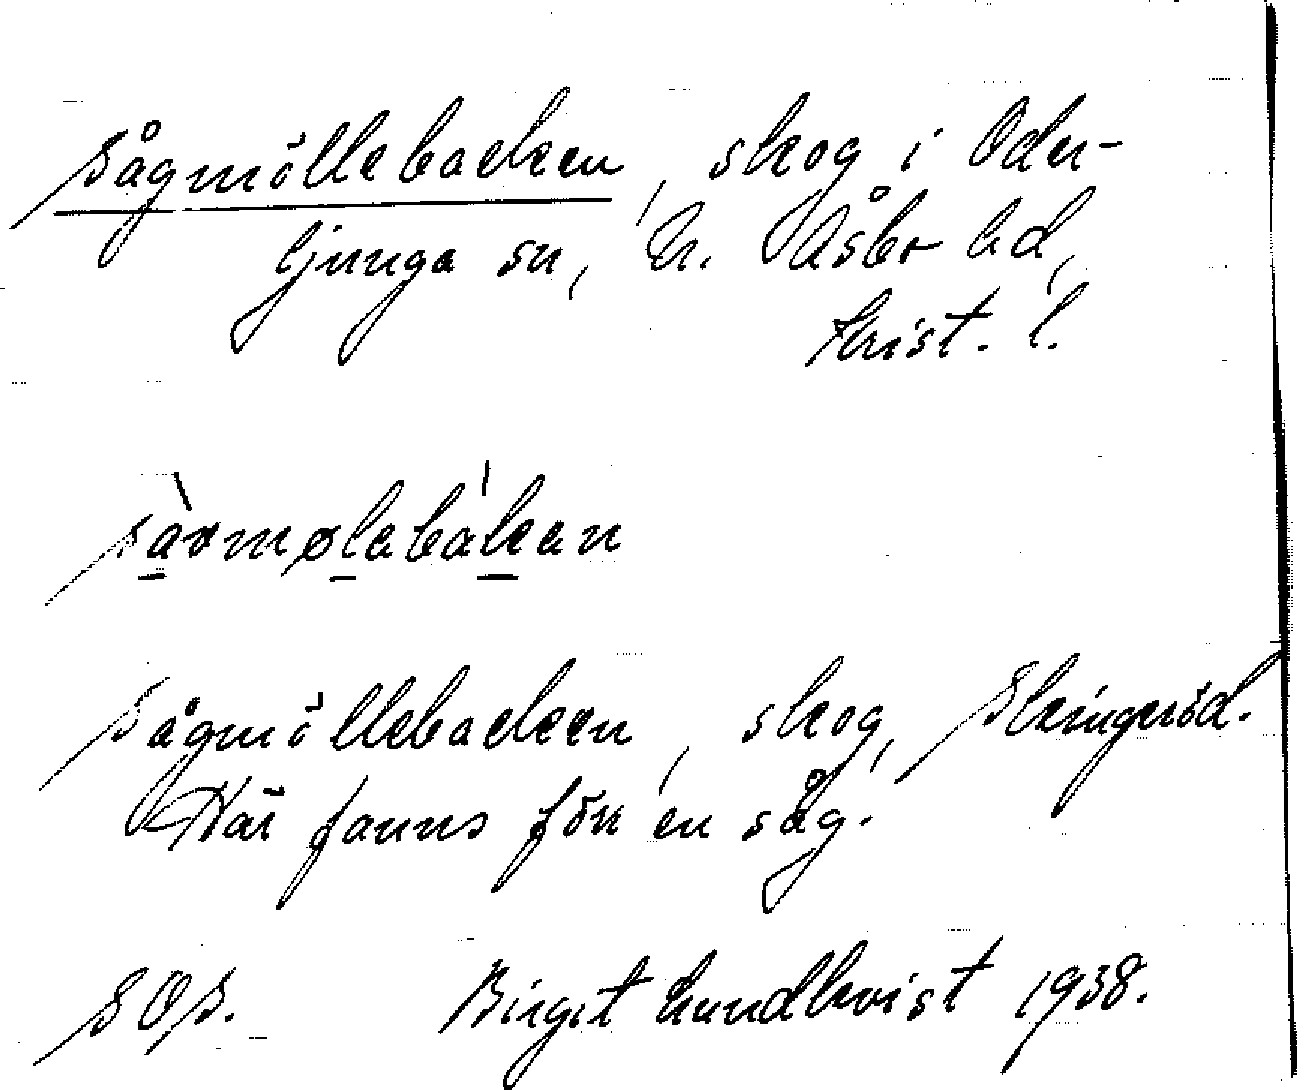 Sågmöllebacken, skog i Oder-
ljunga sn, N. Åsbo hd,
Krist. l.
sàvmølabákan
Sågmöllebacken, skog, Skingeröd.
Här fanns förr en såg.
SOS. Birgit Lundkvist 1938.